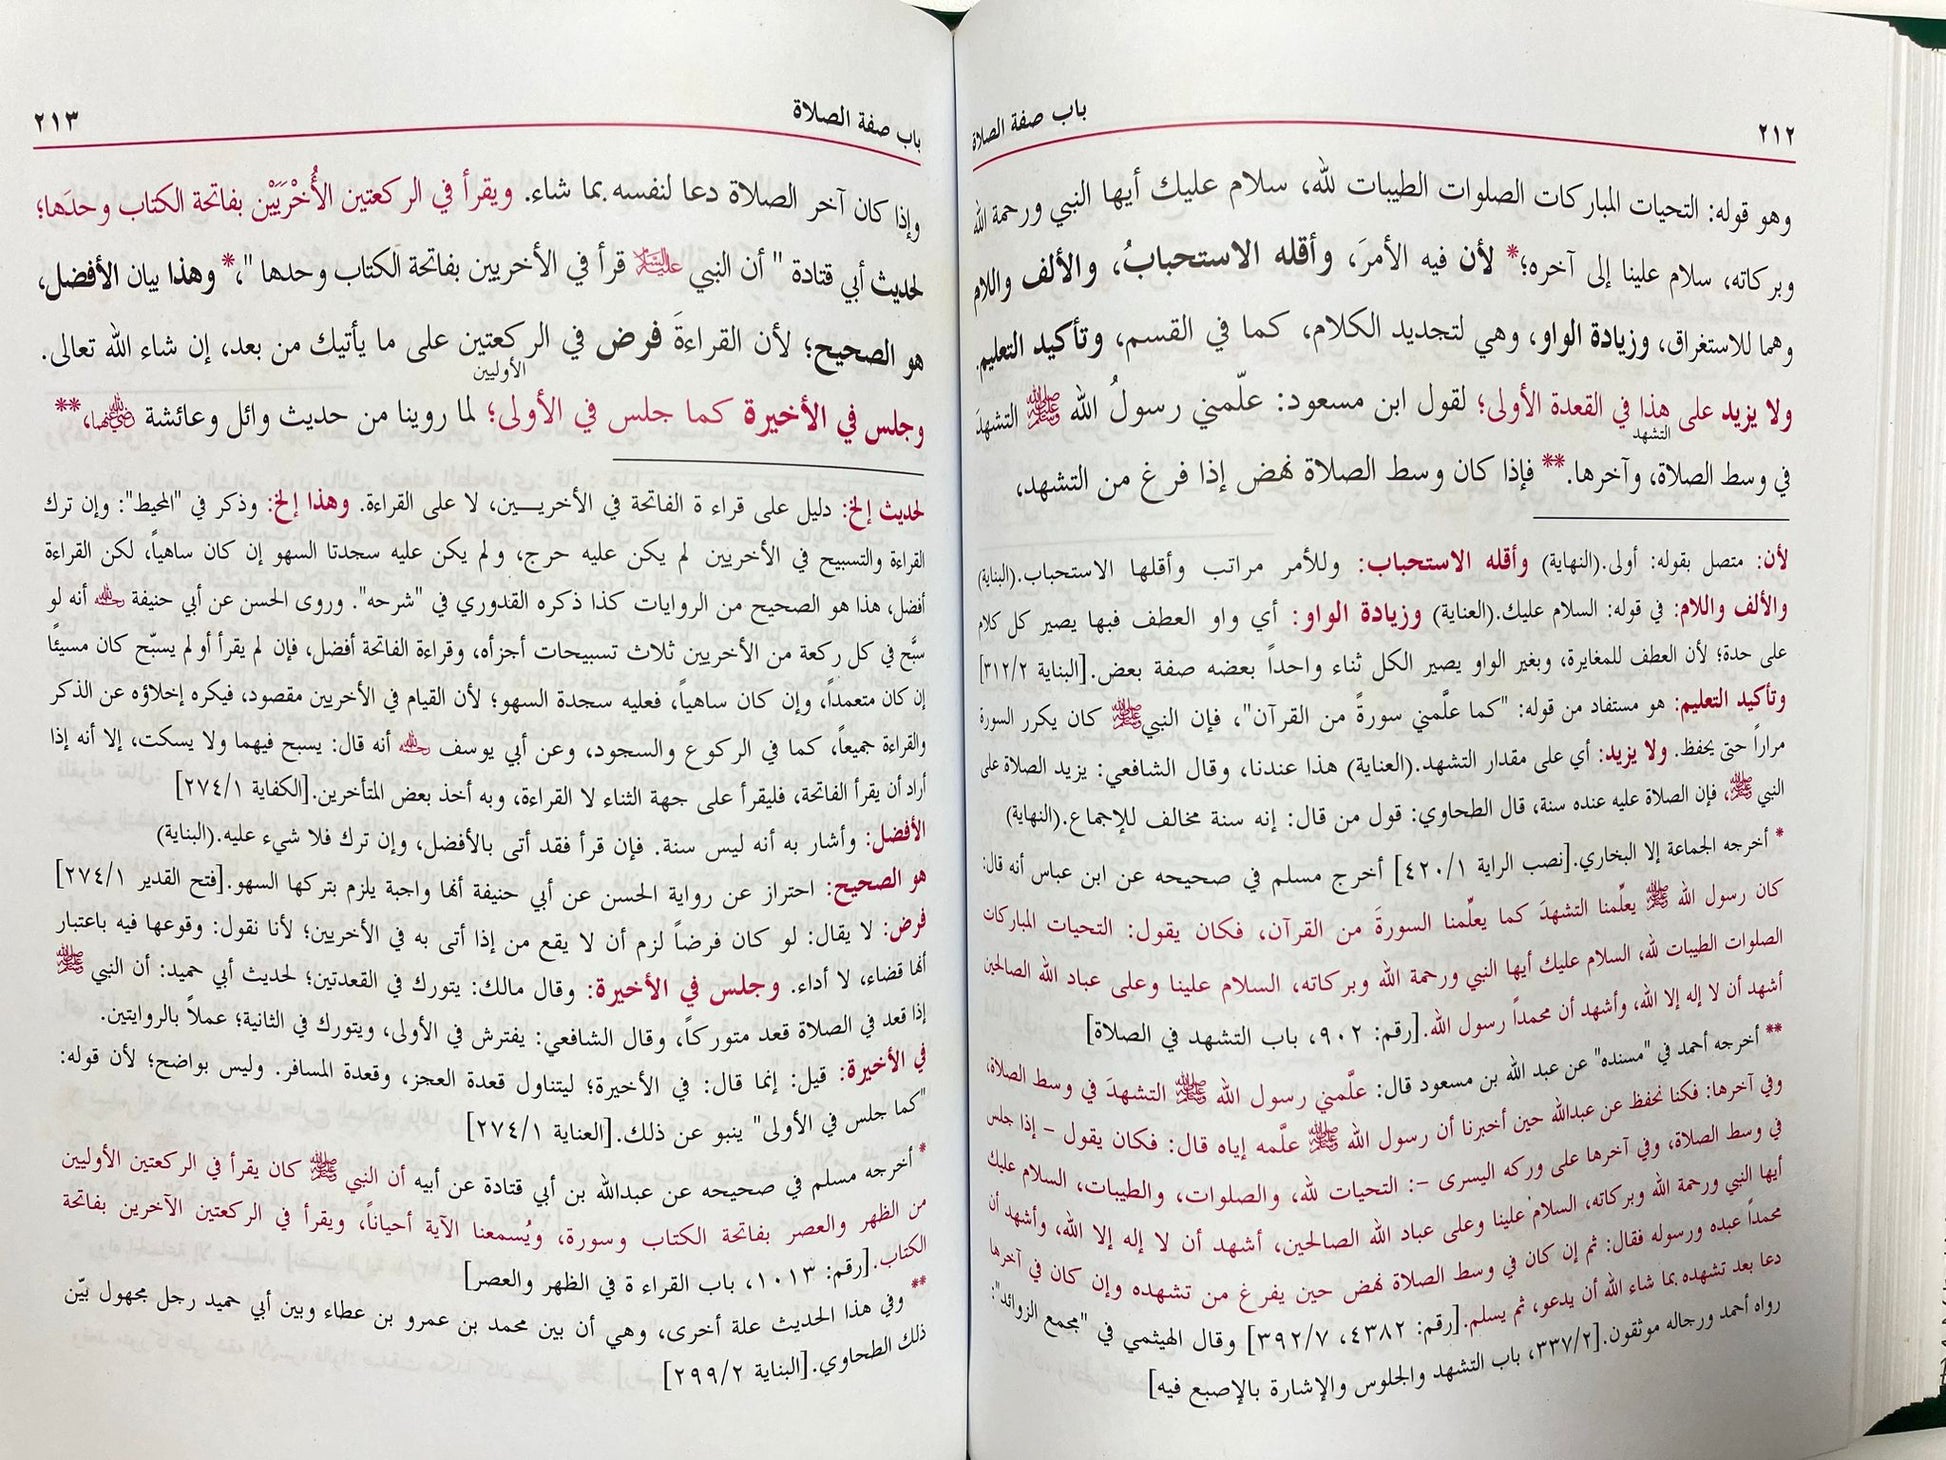 ٢١٢
باب صفة الصلاة
وهو قوله: التحيات المباركات الصلوات الطيبات لله، سلام عليك أيها النبي ورحمة الله
وبركاته، سلام علينا إلى آخره؛* لأن فيه الأمرَ، وأقله الاستحبابُ، والألف واللام
وهما للاستغراق، وزيادة الواو، وهي لتجديد الكلام، كما في القسم، وتأكيد التعليم.
ولا يزيد على هذا في القعدة الأولى؛ لقول ابن مسعود: علّمني رسولُ الله ﷺ التشهدَ
التشهد
في وسط الصلاة، وآخرها.** فإذا كان وسط الصلاة نهض إذا فرغ من التشهد،
لأن: متصل بقوله: أولى.(النهاية) وأقله الاستحباب: وللأمر مراتب وأقلها الاستحباب.(البناية)
والألف واللام: في قوله: السلام عليك.(العناية) وزيادة الواو: أي واو العطف فبها يصير كل كلام
على حدة؛ لأن العطف للمغايرة، وبغير الواو يصير الكل ثناء واحداً بعضه صفة بعض.[البناية ٣١٢/٢]
وتأكيد التعليم: هو مستفاد من قوله: "كما علَّمني سورةً من القرآن"، فإن النبي ﷺ كان يكرر السورة
مراراً حتى يحفظ. ولا يزيد: أي على مقدار التشهد.(العناية) هذا عندنا، وقال الشافعي: يزيد الصلاة على
النبي ﷺ، فإن الصلاة عليه عنده سنة، قال الطحاوي: قول من قال: إنه سنة مخالف للإجماع.(النهاية)
* أخرجه الجماعة إلا البخاري.[نصب الراية ٤٢٠/١] أخرج مسلم في صحيحه عن ابن عباس أنه قال:
كان رسول الله ﷺ يعلِّمنا التشهدَ كما يعلِّمنا السورةَ من القرآن، فكان يقول: التحيات المباركات
الصلوات الطيبات لله، السلام عليك أيها النبي ورحمة الله وبركاته، السلام علينا وعلى عباد الله الصالحين
أشهد أن لا إله إلا الله، وأشهد أن محمداً رسول الله.[رقم: ٩٠٢، باب التشهد في الصلاة]
** أخرجه أحمد في "مسنده" عن عبد الله بن مسعود قال: علَّمني رسول الله ﷺ التشهدَ في وسط الصلاة،
وفي آخرها: فكنا نحفظ عن عبدالله حين أخبرنا أن رسول الله ﷺ علَّمه إياه قال: فكان يقول – إذا جلس
في وسط الصلاة، وفي آخرها على وركه اليسرى –: التحيات لله، والصلوات، والطيبات، السلام عليك
أيها النبي ورحمة الله وبركاته، السلام علينا وعلى عباد الله الصالحين، أشهد أن لا إله إلا الله، وأشهد أن
محمداً عبده ورسوله فقال: ثم إن كان في وسط الصلاة نهض حين يفرغ من تشهده وإن كان في آخرها
دعا بعد تشهده بما شاء الله أن يدعو، ثم يسلم.[رقم: ٤٣٨٢، ٣٩٢/٧] وقال الهيثمي في "مجمع الزوائد":
رواه أحمد ورجاله موثقون.[٣٣٧/٢، باب التشهد والجلوس والإشارة بالإصبع فيه]
باب صفة الصلاة
٢١٣
وإذا كان آخر الصلاة دعا لنفسه بما شاء. ويقرأ في الركعتين الأُخْرَيَيْن بفاتحة الكتاب وحدَها؛
لحديث أبي قتادة "أن النبي عليه السلام قرأ في الأخريين بفاتحة الكتاب وحدها"،* وهذا بيان الأفضل،
هو الصحيح؛ لأن القراءةَ فرض في الركعتين على ما يأتيك من بعد، إن شاء الله تعالى.
الأوليين
وجلس في الأخيرة كما جلس في الأولى؛ لما روينا من حديث وائل وعائشة رضي الله عنهما،**
لحديث إلخ: دليل على قراءة الفاتحة في الأخريــين، لا على القراءة. وهذا إلخ: وذكر في "المحيط": وإن ترك
القراءة والتسبيح في الأخريين لم يكن عليه حرج، ولم يكن عليه سجدتا السهو إن كان ساهياً، لكن القراءة
أفضل، هذا هو الصحيح من الروايات كذا ذكره القدوري في "شرحه". وروى الحسن عن أبي حنيفة رحمه الله أنه لو
سبَّح في كل ركعة من الأخريين ثلاث تسبيحات أجزأه، وقراءة الفاتحة أفضل، فإن لم يقرأ أو لم يسبّح كان مسيئًا
إن كان متعمداً، وإن كان ساهياً، فعليه سجدة السهو؛ لأن القيام في الأخريين مقصود، فيكره إخلاؤه عن الذكر
والقراءة جميعاً، كما في الركوع والسجود، وعن أبي يوسف رحمه الله أنه قال: يسبح فيهما ولا يسكت، إلا أنه إذا
أراد أن يقرأ الفاتحة، فليقرأ على جهة الثناء لا القراءة، وبه أخذ بعض المتأخرين.[الكفاية ٢٧٤/١]
الأفضل: وأشار به أنه ليس سنة. فإن قرأ فقد أتى بالأفضل، وإن ترك فلا شيء عليه.(البناية)
هو الصحيح: احتراز عن رواية الحسن عن أبي حنيفة أنها واجبة يلزم بتركها السهو.[فتح القدير ٢٧٤/١]
فرض: لا يقال: لو كان فرضاً لزم أن لا يقع من إذا أتى به في الأخريين؛ لأنا نقول: وقوعها فيه باعتبار
أنها قضاء، لا أداء. وجلس في الأخيرة: وقال مالك: يتورك في القعدتين؛ لحديث أبي حميد: أن النبي ﷺ
إذا قعد في الصلاة قعد متوركاً، وقال الشافعي: يفترش في الأولى، ويتورك في الثانية؛ عملاً بالروايتين.
في الأخيرة: قيل: إنما قال: في الأخيرة؛ ليتناول قعدة العجز، وقعدة المسافر. وليس بواضح؛ لأن قوله:
"كما جلس في الأولى" ينبو عن ذلك.[العناية ٢٧٤/١]
* أخرجه مسلم في صحيحه عن عبدالله بن أبي قتادة عن أبيه أن النبي ﷺ كان يقرأ في الركعتين الأوليين
من الظهر والعصر بفاتحة الكتاب وسورة، ويُسمعنا الآية أحياناً، ويقرأ في الركعتين الآخرين بفاتحة
الكتاب.[رقم: ١٠١٣، باب القراءة في الظهر والعصر]
** وفي هذا الحديث علة أخرى، وهي أن بين محمد بن عمرو بن عطاء وبين أبي حميد رجل مجهول بيّن
ذلك الطحاوي.[البناية ٢٩٩/٢]